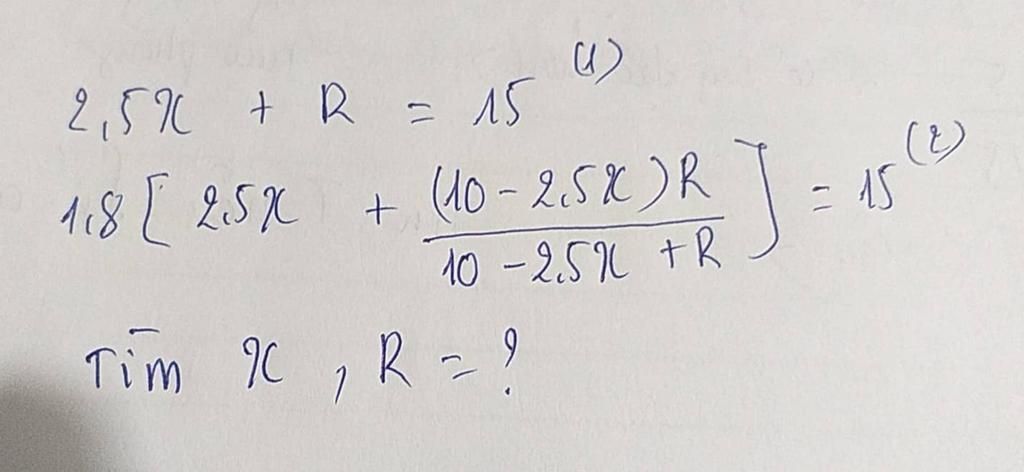 2,5x + R = 15 (1)
1,8 [ 2,5x + (10 - 2,5x) R / 10 - 2,5x + R ] = 15 (2)
Tìm x , R = ?